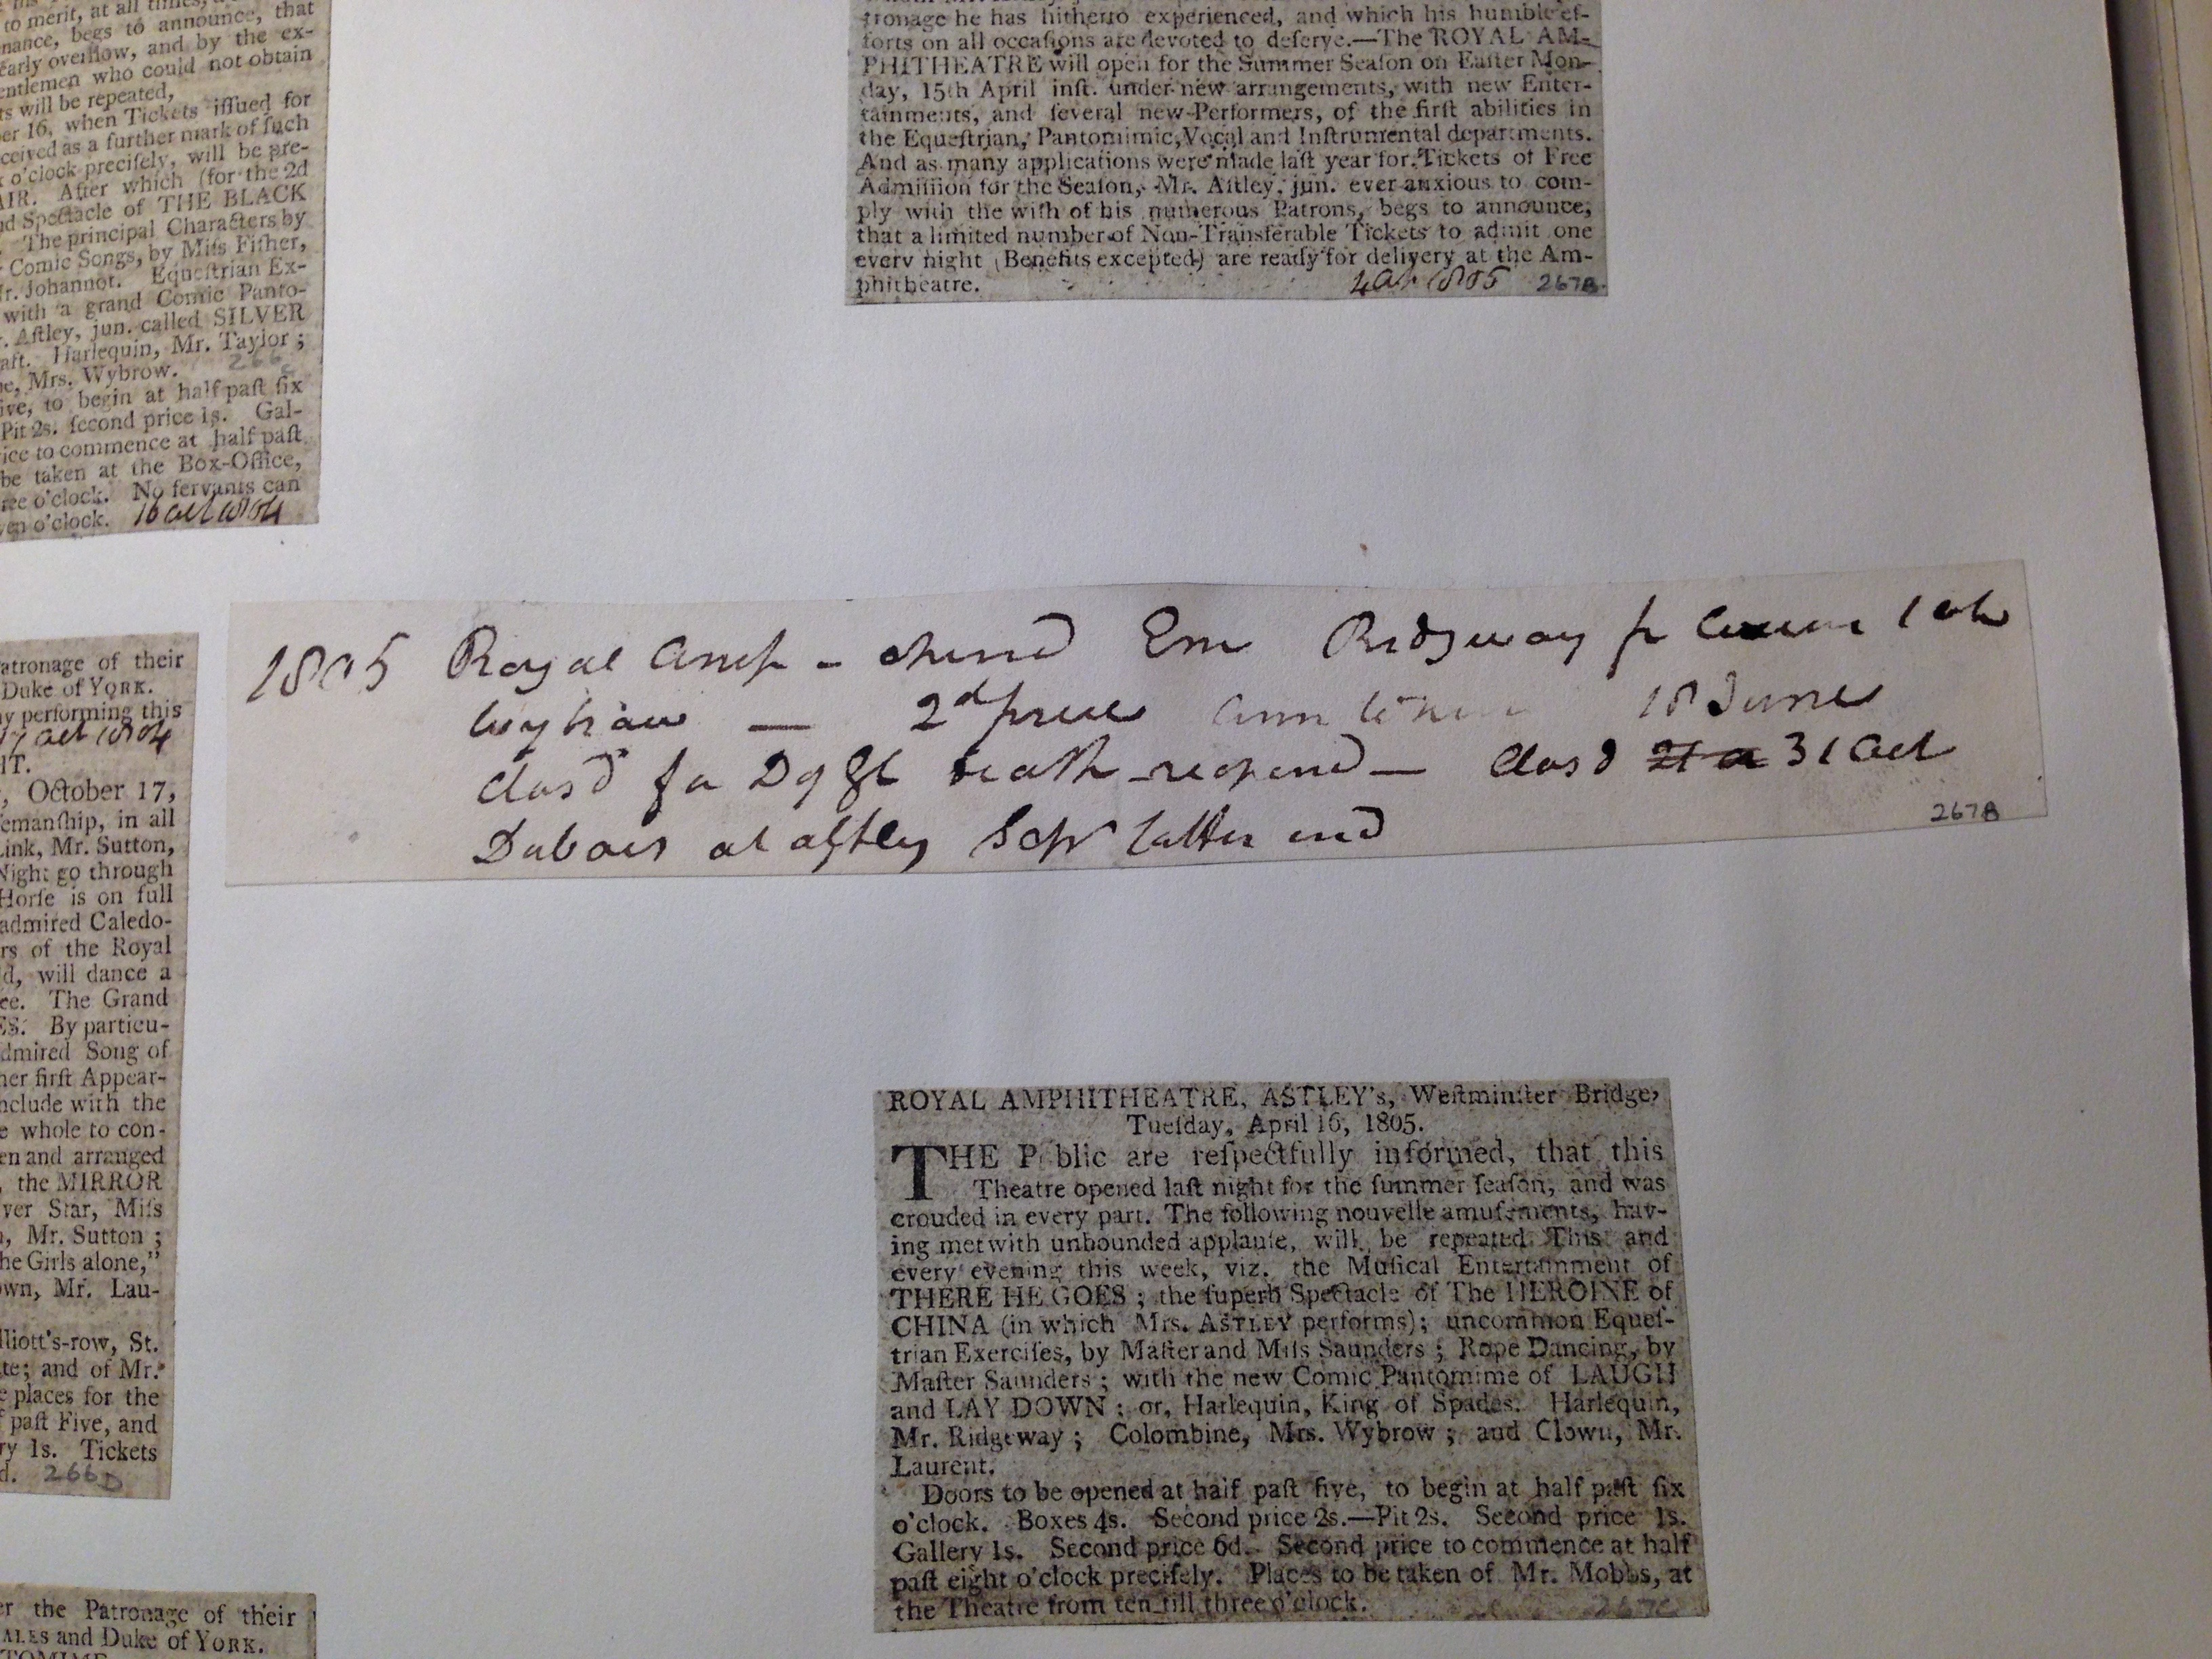 to merit, at all times,
nance, begs to announce, that
early overflow, and by the ex-
entlemen who could not obtain
ts will be repeated,
er 16, when Tickets iſſued for
ceived as a further mark of ſuch
o'clock preciſely, will be pre-
AIR. After which (for the 2d
nd Spectacle of THE BLACK
The principal Characters by
Comic Songs, by Miſs Fiſher,
Mr. Johannot. Equeſtrian Ex-
with a grand Comic Panto-
. Aſtley, jun. called SILVER
aft. Harlequin, Mr. Taylor;
ne, Mrs. Wybrow. 266
ive, to begin at half paſt ſix
Pit 2s. ſecond price 1s. Gal-
rice to commence at half paſt
be taken at the Box-Office,
ree o'clock. No ſervants can
ven o'clock. 16 Oct 1804
tronage he has hitherto experienced, and which his humble ef-
forts on all occaſions are devoted to deſerve.—The ROYAL AM-
PHITHEATRE will open for the Summer Seaſon on Eaſter Mon-
day, 15th April inſt. under new arrangements, with new Enter-
tainments, and ſeveral new Performers, of the firſt abilities in
the Equeſtrian, Pantomimic, Vocal and Inſtrumental departments.
And as many applications were made laſt year for Tickets of Free
Admiſſion for the Seaſon, Mr. Aſtley, jun. ever anxious to com-
ply with the wiſh of his numerous Patrons, begs to announce,
that a limited number of Non-Transferable Tickets to admit one
every night (Benefits excepted) are ready for delivery at the Am-
phitheatre. 4 Ap 1805 267A
1805 Royal Amp - opend Em Ridgway fr
Wybrow — 2d price 18 June
Closd fa D of Gl death reopend — Closd 31 Oct
Dubois at Astley Sepr latter end
267B
atronage of their
Duke of YORK.
y performing this
17 Oct 1804
IT.
, October 17,
emanſhip, in all
Link, Mr. Sutton,
Night go through
Horſe is on full
admired Caledo-
rs of the Royal
d, will dance a
ee. The Grand
ES. By particu-
dmired Song of
her firſt Appear-
nclude with the
e whole to con-
en and arranged
, the MIRROR
ver Star, Miſs
, Mr. Sutton;
he Girls alone,"
own, Mr. Lau-
lliott's-row, St.
te; and of Mr.
e places for the
f paſt Five, and
ry 1s. Tickets
d. 266D
er the Patronage of their
ALES and Duke of YORK.
TOMIME
ROYAL AMPHITHEATRE, ASTLEY's, Weſtminſter Bridge,
Tueſday, April 16, 1805.
THE Public are reſpectfully informed, that this
Theatre opened laſt night for the ſummer ſeaſon, and was
crouded in every part. The following nouvelle amuſements, hav-
ing met with unbounded applauſe, will be repeated This and
every evening this week, viz. the Muſical Entertainment of
THERE HE GOES; the ſuperb Spectacle of The HEROINE of
CHINA (in which Mrs. ASTLEY performs); uncommon Equeſ-
trian Exerciſes, by Maſter and Miſs Saunders; Rope Dancing, by
Maſter Saunders; with the new Comic Pantomime of LAUGH
and LAY DOWN; or, Harlequin, King of Spades. Harlequin,
Mr. Ridgeway; Colombine, Mrs. Wybrow; and Clown, Mr.
Laurent.
Doors to be opened at half paſt five, to begin at half paſt ſix
o'clock. Boxes 4s. Second price 2s.—Pit 2s. Second price 1s.
Gallery 1s. Second price 6d. Second price to commence at half
paſt eight o'clock preciſely. Places to be taken of Mr. Mobbs, at
the Theatre from ten till three o'clock. 267C